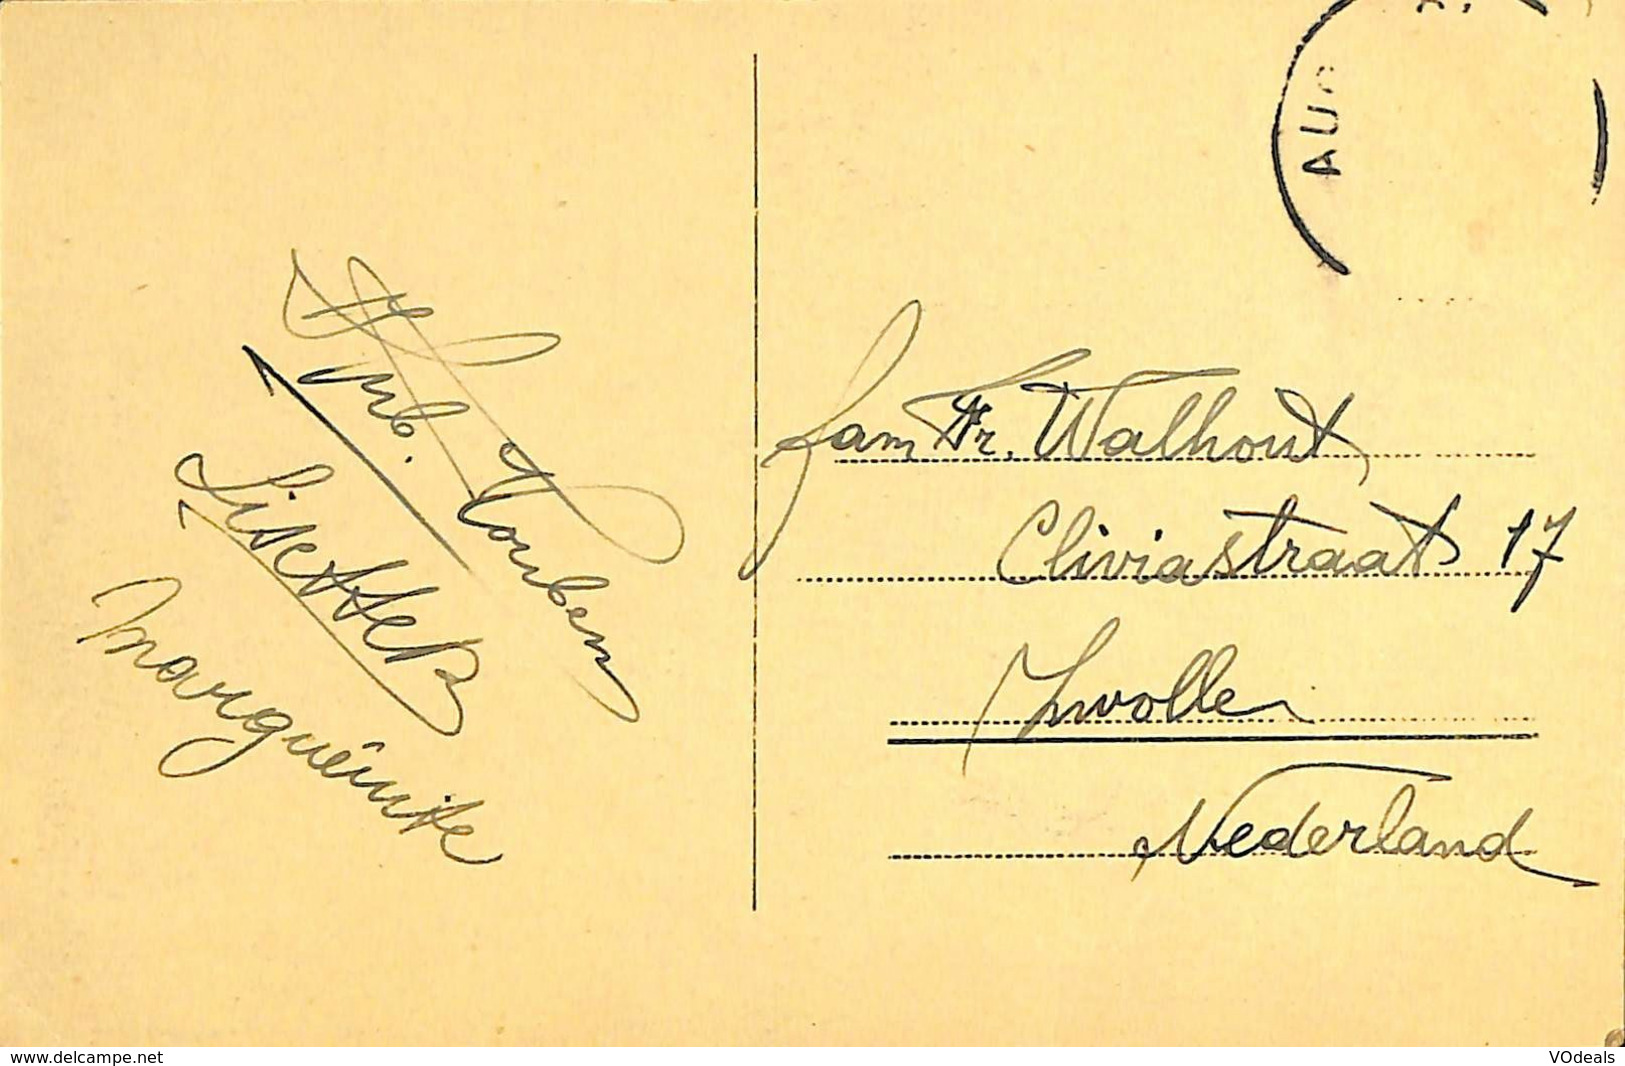 AU
Lisette B
Marguérite
Fam Fr. Walhout
Cliviastraat 17
Zwolle
Nederland
www.delcampe.net
VOdeals